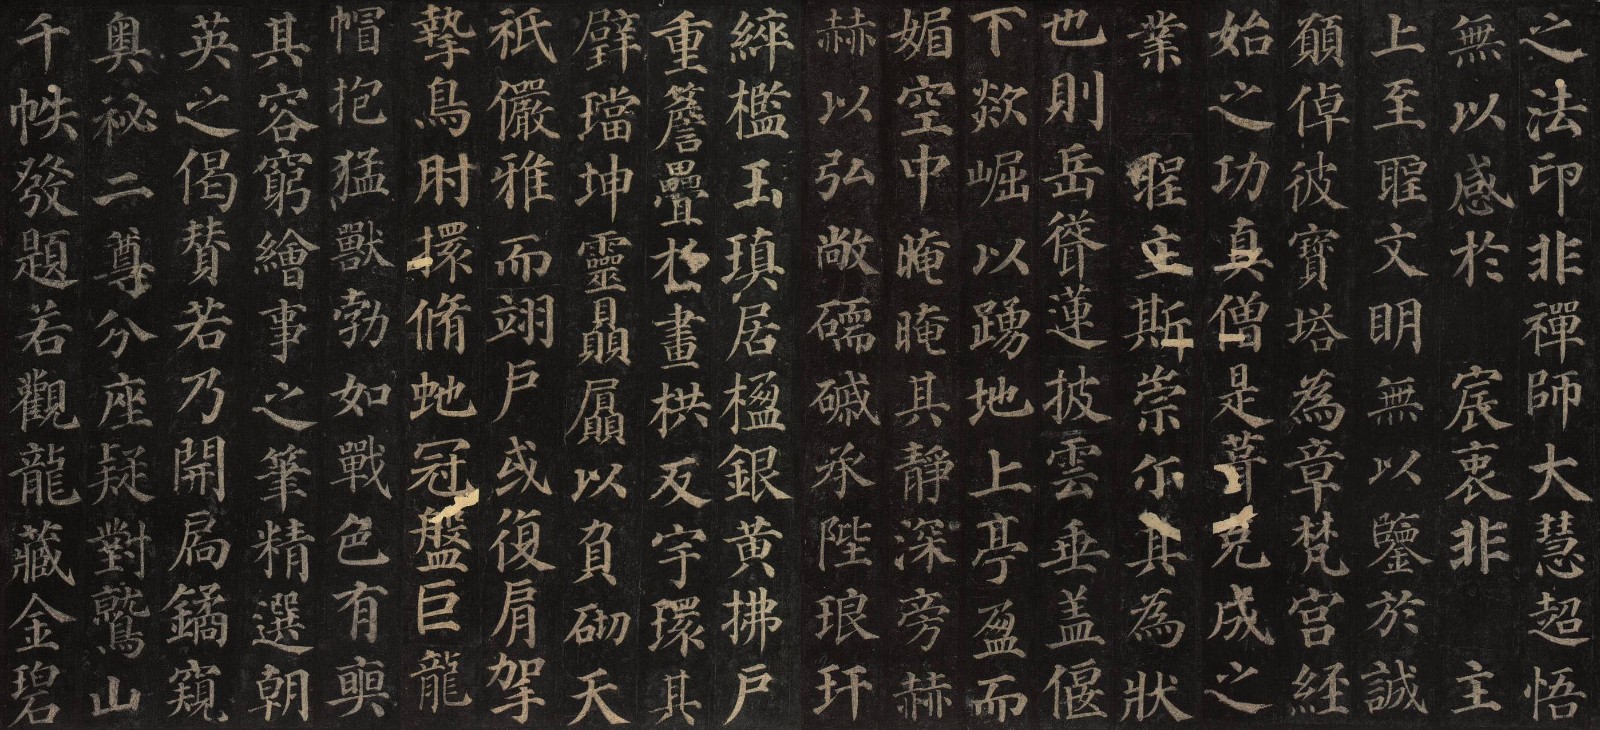 之法印非禪師大慧超悟
無以感於 宸衷非 主
上至聖文明無以鑒於誠
願倬彼寶塔為章梵宮經
始之功真僧是葺克成之
業 聖主斯崇尒其為狀
也則岳聳蓮披雲垂盖偃
下欻崛以踴地上亭盈而
媚空中晻晻其靜深旁赫
赫以弘敞礝磩承陛琅玕
綷檻玉瑱居楹銀黃拂戶
重簷疊於畫栱反宇環其
壁璫坤靈贔屭以負砌天
祇儼雅而翊戶或復肩拏
摯鳥肘擐脩虵冠盤巨龍
帽抱猛獸勃如戰色有奭
其容窮繪事之筆精選朝
英之偈贊若乃開扃鐍窺
奧祕二尊分座疑對鷲山
千帙發題若觀龍藏金碧